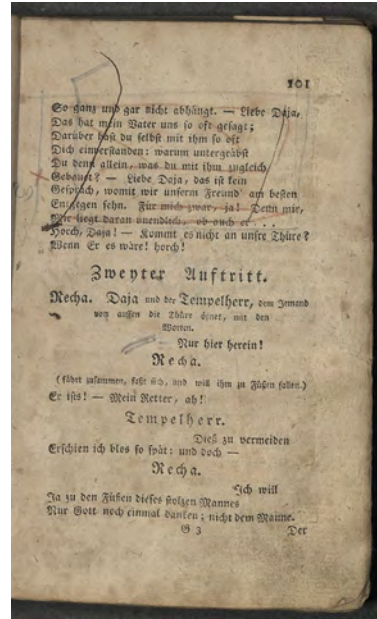 101
So ganz und gar nicht abhängt. — Liebe Daja,
Das hat mein Vater uns so oft gesagt;
Darüber hast du selbst mit ihm so oft
Dich einverstanden: warum untergräbst
Du denn allein, was du mit ihm zugleich
Gebauet? — Liebe Daja, das ist kein
Gespräch, womit wir unserm Freund' am besten
Entgegen sehn. Für mich zwar, ja! Denn mir,
Mir liegt daran unendlich, ob auch er...
Horch, Daja! — Kommt es nicht an unsre Thüre?
Wenn Er es wäre! horch!
Zweyter Auftritt.
Recha. Daja und der Tempelherr, dem Jemand
von aussen die Thüre öfnet, mit den
Worten.
Nur hier herein!
Recha.
(fährt zusammen, faßt sich, und will ihm zu Füßen fallen.)
Er ists! — Mein Retter, ah!
Tempelherr.
Dieß zu vermeiden
Erschien ich blos so spät: und doch —
Recha.
Ich will
Ja zu den Füßen dieses stolzen Mannes
Nur Gott noch einmal danken; nicht dem Manne.
G 3 Der